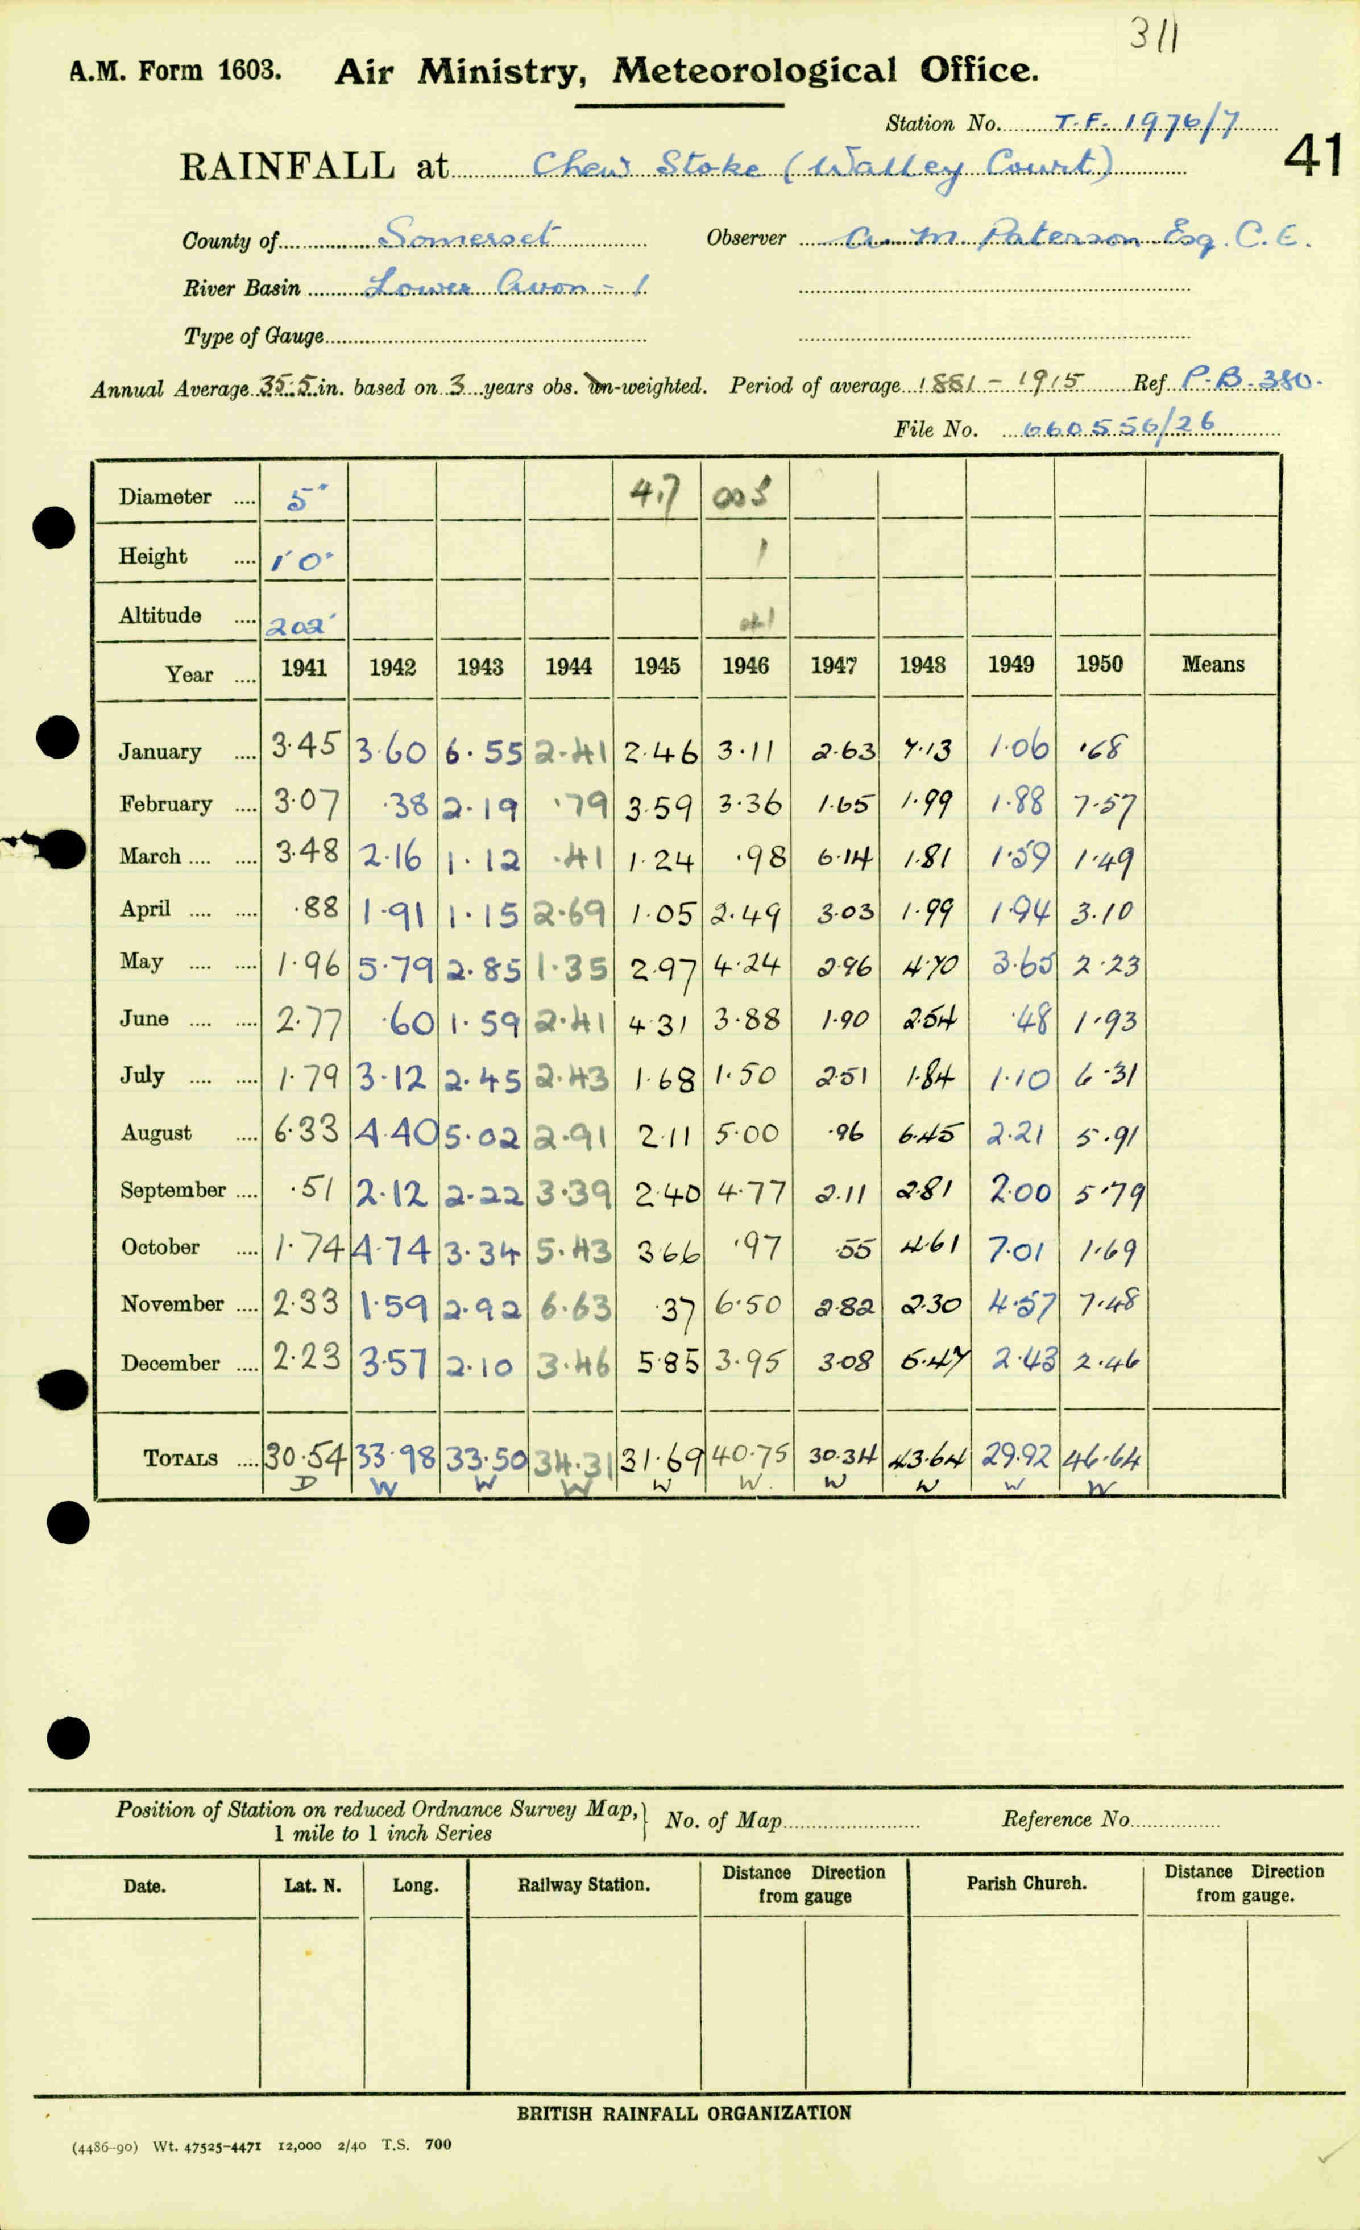 311
A.M. Form 1603. Air Ministry, Meteorological Office.
Station No. T.F. 1976/7
RAINFALL at Chew Stoke (Walley Court) 41
County of Somerset Observer A. M. Paterson Esq. C.E.
River Basin Lower Avon - 1
Type of Gauge
Annual Average 35.5 in. based on 3 years obs. Un-weighted. Period of average 1881 - 1915 Ref P.B. 380.
File No. 660556/26
Diameter .... 5" 4.7 003
Height .... 1' 0" 1
Altitude .... 202'
Year .... 1941 1942 1943 1944 1945 1946 1947 1948 1949 1950 Means
January .... 3.45 3.60 6.55 2.41 2.46 3.11 2.63 7.13 1.06 .68
February .... 3.07 .38 2.19 .79 3.59 3.36 1.65 1.99 1.88 7.57
March .... .... 3.48 2.16 1.12 .41 1.24 .98 6.14 1.81 1.59 1.49
April .... .... .88 1.91 1.15 2.69 1.05 2.49 3.03 1.99 1.94 3.10
May .... .... 1.96 5.79 2.85 1.35 2.97 4.24 2.96 4.70 3.65 2.23
June .... .... 2.77 .60 1.59 2.41 4.31 3.88 1.90 2.54 .48 1.93
July .... .... 1.79 3.12 2.45 2.43 1.68 1.50 2.51 1.84 1.10 6.31
August .... 6.33 4.40 5.02 2.91 2.11 5.00 .96 6.45 2.21 5.91
September .... .51 2.12 2.22 3.39 2.40 4.77 2.11 2.81 2.00 5.79
October .... 1.74 4.74 3.34 5.43 3.66 .97 .55 4.61 7.01 1.69
November .... 2.33 1.59 2.92 6.63 .37 6.50 2.82 2.30 4.57 7.48
December .... 2.23 3.57 2.10 3.46 5.85 3.95 3.08 5.47 2.43 2.46
TOTALS .... 30.54 33.98 33.50 34.31 31.69 40.75 30.34 43.64 29.92 46.64
D W W W W W. W W W W
Position of Station on reduced Ordnance Survey Map, No. of Map Reference No.
1 mile to 1 inch Series
Date. Lat. N. Long. Railway Station. Distance Direction Parish Church. Distance Direction
from gauge from gauge.
BRITISH RAINFALL ORGANIZATION
(4486-90) Wt. 47525-4471 12,000 2/40 T.S. 700